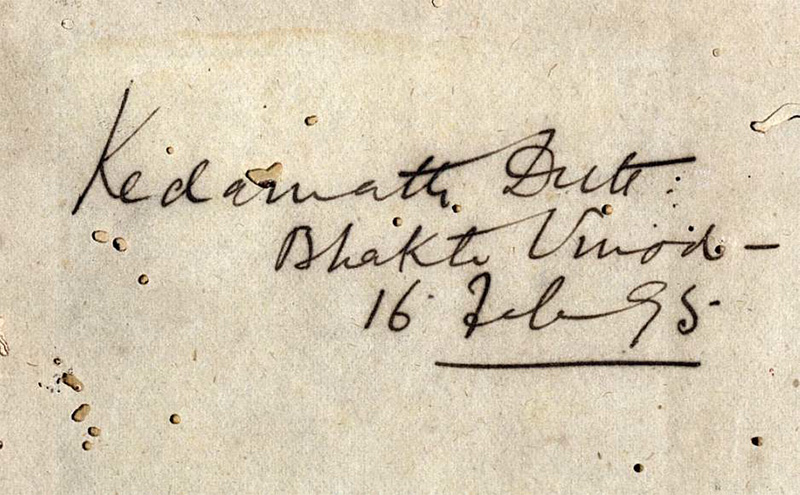 Kedarnath Dutt:
Bhakti Vinod -
16 Feb 95